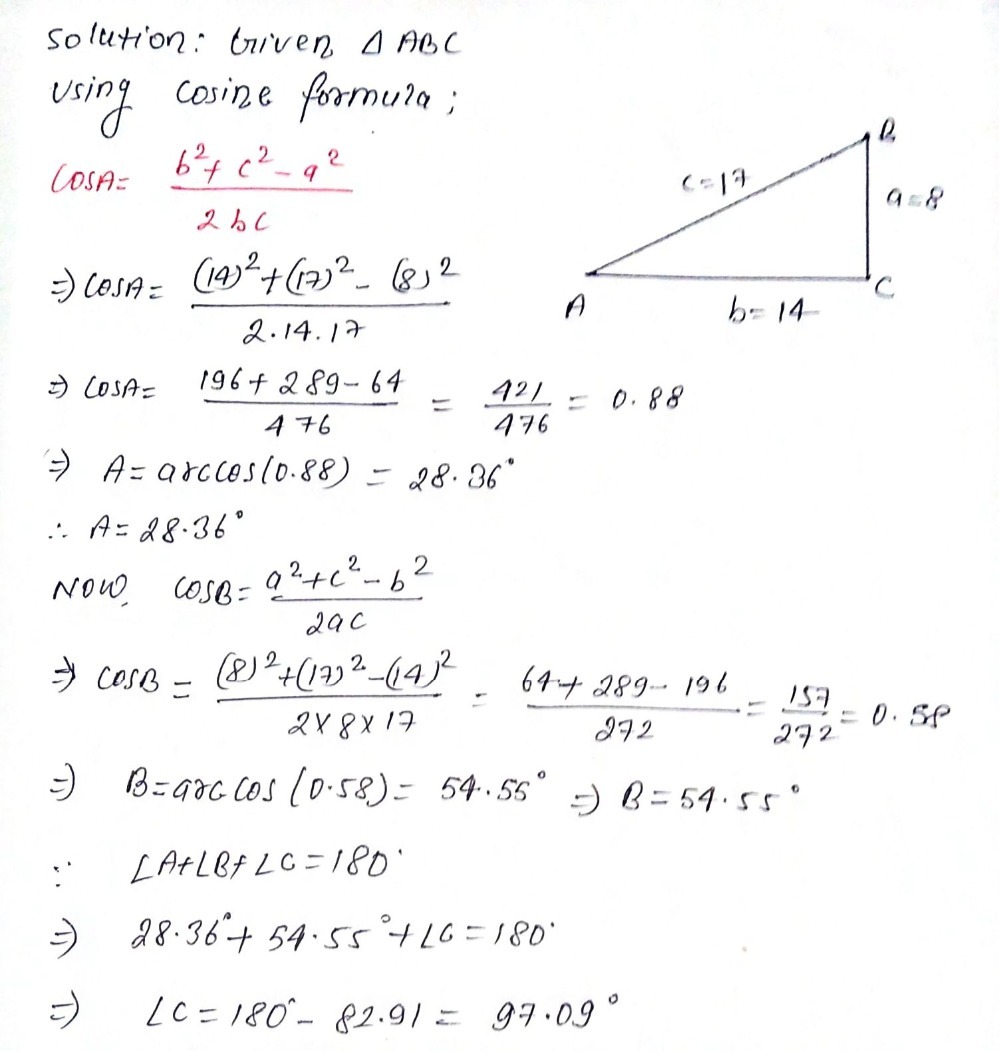 Solution: Given △ ABC
Using cosine formula;
cosA= b²+c²-a² / 2bc
⇒ cosA= (14)²+(17)²-(8)² / 2.14.17
⇒ cosA= 196+289-64 / 476 = 421 / 476 = 0.88
⇒ A=arccos(0.88) = 28.36°
∴ A=28.36°
Now, cosB= a²+c²-b² / 2ac
⇒ cosB = (8)²+(17)²-(14)² / 2×8×17 = 64+289-196 / 272 = 157 / 272 = 0.58
⇒ B=arccos(0.58)= 54.55° ⇒ B=54.55°
∵ ∠A+∠B+∠C=180°
⇒ 28.36°+54.55°+∠C=180°
⇒ ∠C=180°-82.91= 97.09°
B
c=17
a=8
A
C
b=14